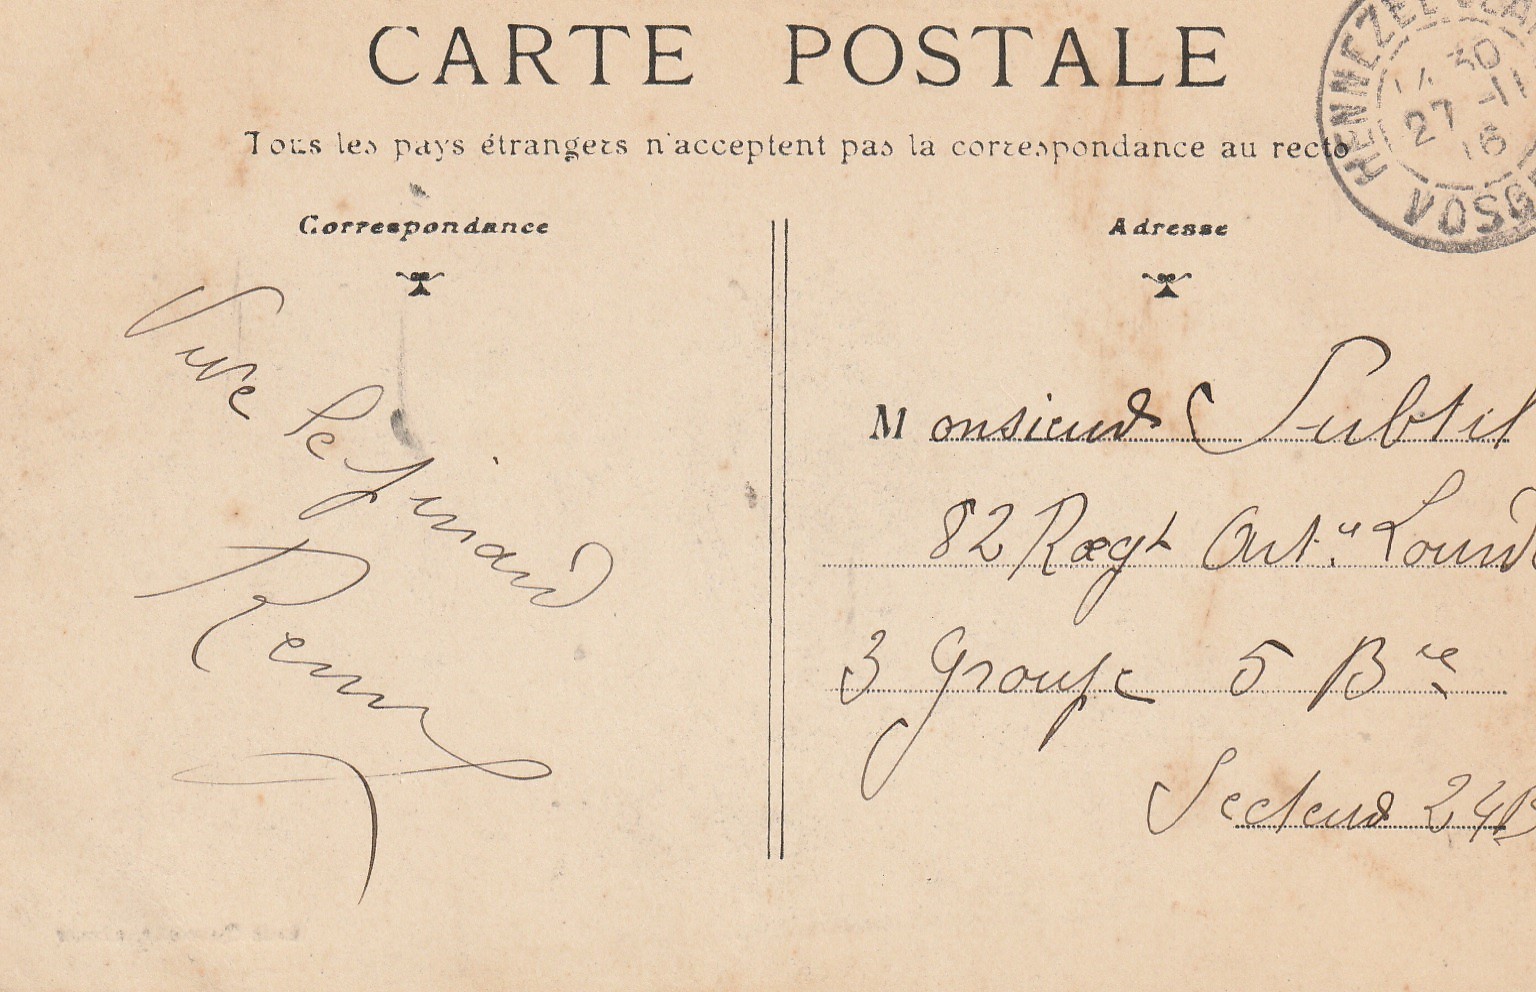 CARTE POSTALE
Tous les pays étrangers n'acceptent pas la correspondance au recto
HENNEZEL
VOSGES
14 30
27 -11
16
Correspondance
Adresse
Vive le pinard
Remy
Monsieur Subtil
82 Regt Art.ie Lourde
3 Groupe 5 Bie
Secteur 24B